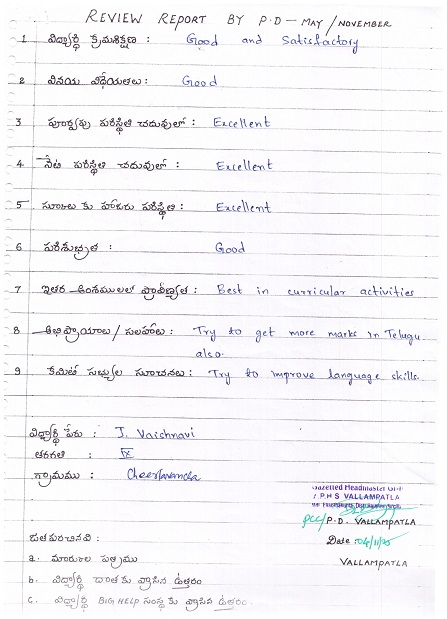 REVIEW REPORT BY P.D - MAY/NOVEMBER
1 విద్యార్థి క్రమశిక్షణ : Good and Satisfactory
2 వినయ విధేయతలు : Good
3 పూర్వపు పరిస్థితి చదువులో : Excellent
4 నేటి పరిస్థితి చదువులో : Excellent
5 స్కూలు కు హాజరు పరిస్థితి : Excellent
6 పరిశుభ్రత : Good
7 ఇతర అంశములలో ప్రావీణ్యత : Best in curricular activities
8 అభిప్రాయాలు / సలహాలు : Try to get more marks in Telugu
also.
9 కమిటి సభ్యుల సూచనలు : Try to improve language skills.
విద్యార్థి పేరు : J. Vaishnavi
తరగతి : IX
గ్రామము :
Gazetted Headmaster
Z.P.H.S VALLAMPATLA
P.D. VALLAMPATLA
Date : 04/11/25
VALLAMPATLA
జతపరచినవి :
a. మార్కుల పత్రము
b. విద్యార్థి దాత కు వ్రాసిన ఉత్తరం
c. విద్యార్థి BIG HELP సంస్థ కు వ్రాసిన ఉత్తరం.